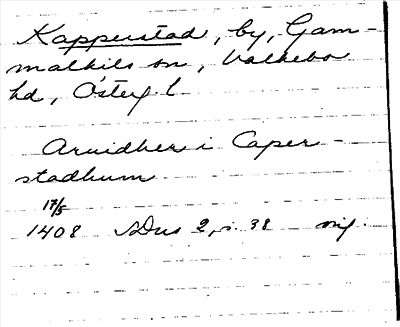 Kapperstad, by, Gam-
malkils sn, Valkebo
hd, Österg l.
Aruidher i Caper-
stadhum
17/5
1408 SDns 2, s. 38